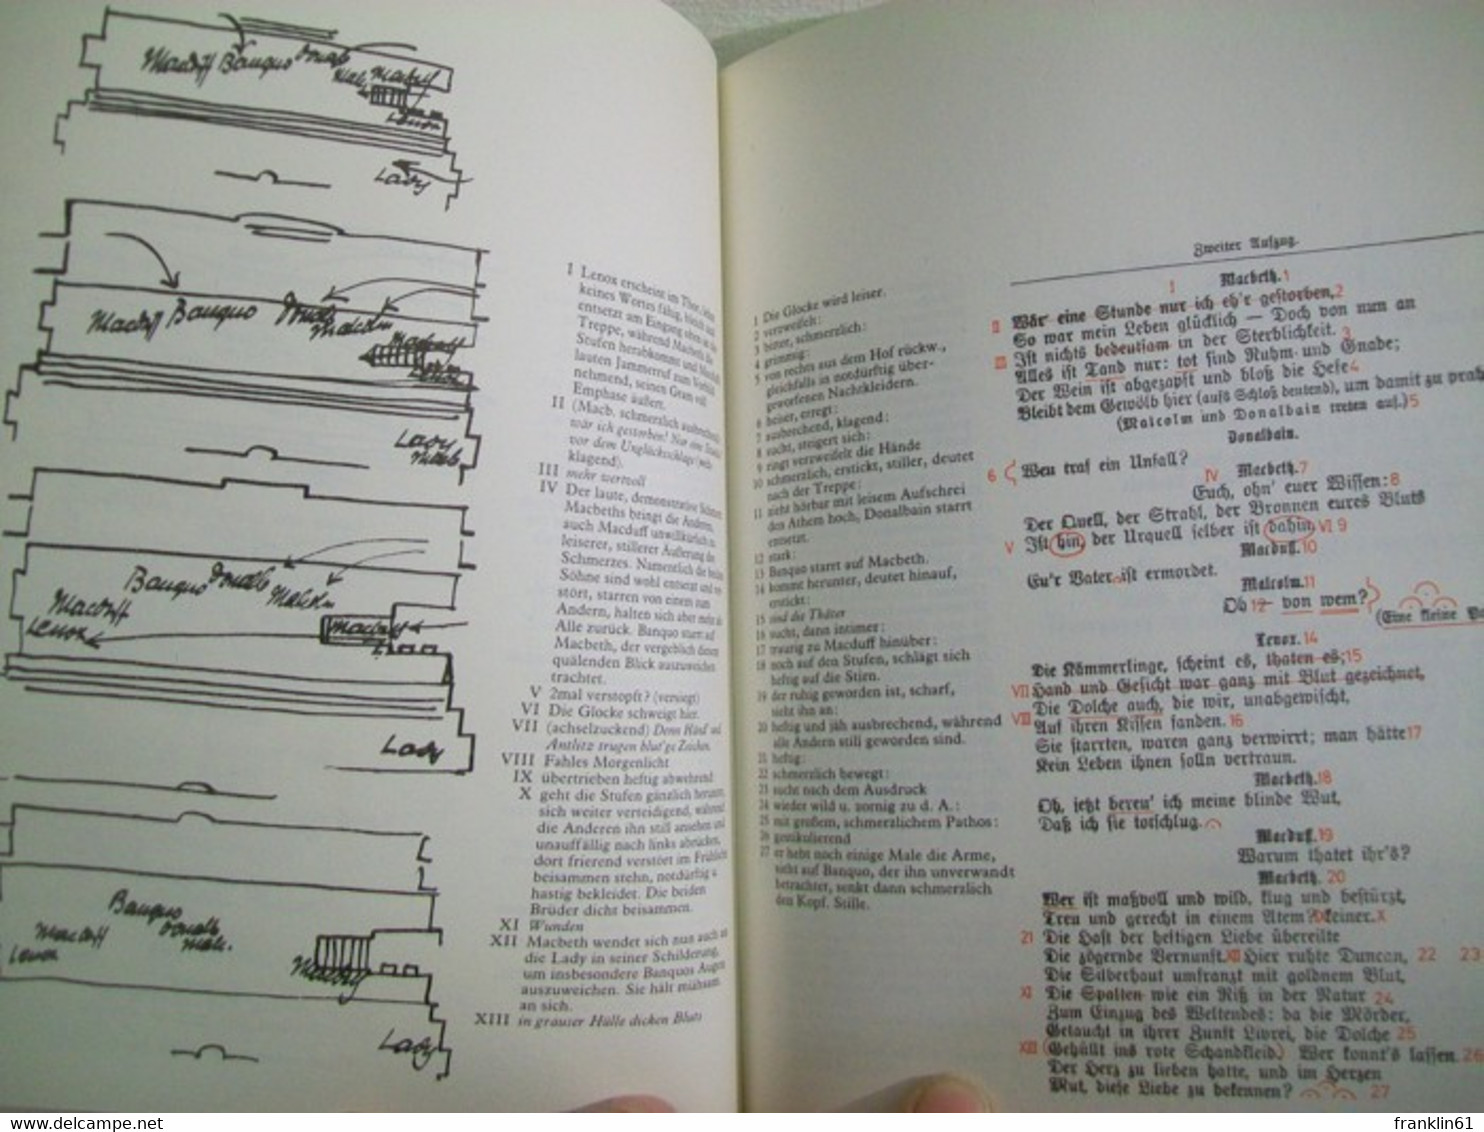 Macduff Banquo Donalb
Malc. Macbeth
Lenox
Lady
Macduff Banquo Donalb
Malcolm
Macbeth
Lenox
Lady
Macb
Banquo Donalb
Malcolm
Macduff
Lenox
Macbeth
Lady
Banquo
Donalb
Malc.
Macduff
Lenox
Macbeth
Lady
I Lenox erscheint im Thor,
keines Wortes fähig, bleich und
entsetzt am Eingang oben an der
Treppe, während Macbeth die
Stufen herabkommt und
lauten Jammerruf zum
nehmend, seinen Gram voll
Emphase äußert.
II (Macb. schmerzlich ausbrechend
wär ich gestorben! Nur eine Stunde
vor dem Unglücksschlage
klagend).
III mehr wertvoll
IV Der laute, demonstrative Schmerz
Macbeths bringt die Anderen,
auch Macduff unwillkürlich zu
leiserer, stillerer Äußerung des
Schmerzes. Namentlich die beiden
Söhne sind wohl entsetzt und
stört, starren von einem zum
Andern, halten sich aber mehr als
Alle zurück. Banquo starrt auf
Macbeth, der vergeblich diesem
quälenden Blick auszuweichen
trachtet.
V 2mal verstopft? (versiegt)
VI Die Glocke schweigt hier.
VII (achselzuckend) Denn Händ' und
Antlitz trugen blut'ge Zeichen.
VIII Fahles Morgenlicht
IX übertrieben heftig abwehrend
X geht die Stufen gänzlich herunter,
sich weiter verteidigend, während
die Anderen ihn still ansehen und
unauffällig nach links abrücken,
dort frierend verstört im Frühlicht
beisammen stehn, notdürftig u.
hastig bekleidet. Die beiden
Brüder dicht beisammen.
XI Wunden
XII Macbeth wendet sich nun auch an
die Lady in seiner Schilderung,
um insbesondere Banquos Augen
auszuweichen. Sie hält mühsam
an sich.
XIII in grauser Hülle dicken Bluts
1 Die Glocke wird leiser.
2 verzweifelt:
3 bitter, schmerzlich:
4 grimmig:
5 von rechts aus dem Hof rückw.,
gleichfalls in notdürftig über-
geworfenen Nachtkleidern.
6 heiser, erregt:
7 ausbrechend, klagend:
8 sucht, steigert sich:
9 ringt verzweifelt die Hände
10 schmerzlich, erstickt, stiller, deutet
nach der Treppe:
11 zieht hörbar mit leisem Aufschrei
den Athem hoch, Donalbain starrt
entsetzt.
12 stark:
13 Banquo starrt auf Macbeth.
14 kommt herunter, deutet hinauf,
erstickt:
15 sind die Thäter
16 sucht, dann intimer:
17 traurig zu Macduff hinüber:
18 noch auf den Stufen, schlägt sich
heftig auf die Stirn.
19 der ruhig geworden ist, scharf,
sieht ihn an:
20 heftig und jäh ausbrechend, während
alle Andern still geworden sind.
21 heftig:
22 schmerzlich bewegt:
23 sucht nach dem Ausdruck
24 wieder wild u. zornig zu d. A.:
25 mit großem, schmerzlichem Pathos:
26 gestikulierend
27 er hebt noch einige Male die Arme,
sieht auf Banquo, der ihn unverwandt
betrachtet, senkt dann schmerzlich
den Kopf. Stille.
Zweiter Aufzug.
Macbeth. 1
I
II Wär' eine Stunde nur ich eh'r gestorben, 2
So war mein Leben glücklich — Doch von nun an
III Ist nichts bedeutsam in der Sterblichkeit. 3
Alles ist Tand nur: tot sind Ruhm und Gnade;
Der Wein ist abgezapft und bloß die Hefe 4
Bleibt dem Gewölb hier (aufs Schloß deutend), um damit zu
(Malcolm und Donalbain treten auf.) 5
Donalbain.
6 Wen traf ein Unfall?
IV Macbeth. 7
Euch, ohn' euer Wissen: 8
Der Quell, der Strahl, der Bronnen eures Bluts
V Ist hin, der Urquell selber ist dahin, VI 9
Macduff. 10
Eu'r Vater ist ermordet.
Malcolm. 11
Oh 12 — von wem?
(Eine kleine
Lenox. 14
Die Kämmerlinge, scheint es, thaten es; 15
VII Hand und Gesicht war ganz mit Blut gezeichnet,
Die Dolche auch, die wir, unabgewischt,
VIII Auf ihren Kissen fanden. 16
Sie starrten, waren ganz verwirrt; man hätte 17
Kein Leben ihnen solln vertraun.
Macbeth. 18
Oh, jetzt bereu' ich meine blinde Wut,
Daß ich sie totschlug.
Macduff. 19
Warum thatet ihr's?
Macbeth. 20
Wer ist maßvoll und wild, klug und bestürzt,
Treu und gerecht in einem Atem? IX Keiner. X
21 Die Hast der heftigen Liebe übereilte
Die zögernde Vernunft. XII Hier ruhte Duncan, 22 23
Die Silberhaut umfranzt mit goldnem Blut,
XI Die Spalten wie ein Riß in der Natur 24
Zum Einzug des Weltendes: da die Mörder,
Getaucht in ihrer Zunft Livrei, die Dolche 25
XIII (Gehüllt ins rote Schandkleid.) Wer konnt's lassen, 26
Der Herz zu lieben hatte, und im Herzen
Mut, diese Liebe zu bekennen? 27
franklin61
www.delcampe.net